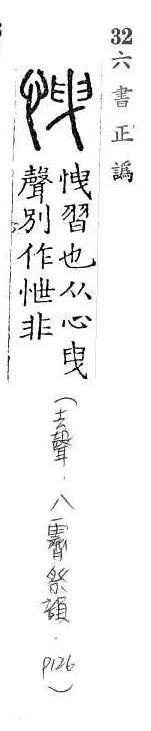 32六書正譌
愧習也从心曳
聲別作忚非
(去聲．八霽祭韻．P126)